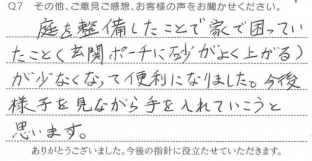 Q7 その他、ご意見ご感想、お客様の声をお聞かせください。
庭を整備したことで家で困ってい
たこと(玄関ポーチに砂がよく上がる)
が少なくなって便利になりました。今後
様子を見ながら手を入れていこうと
思います。
ありがとうございました。今後の指針に役立たせていただきます。